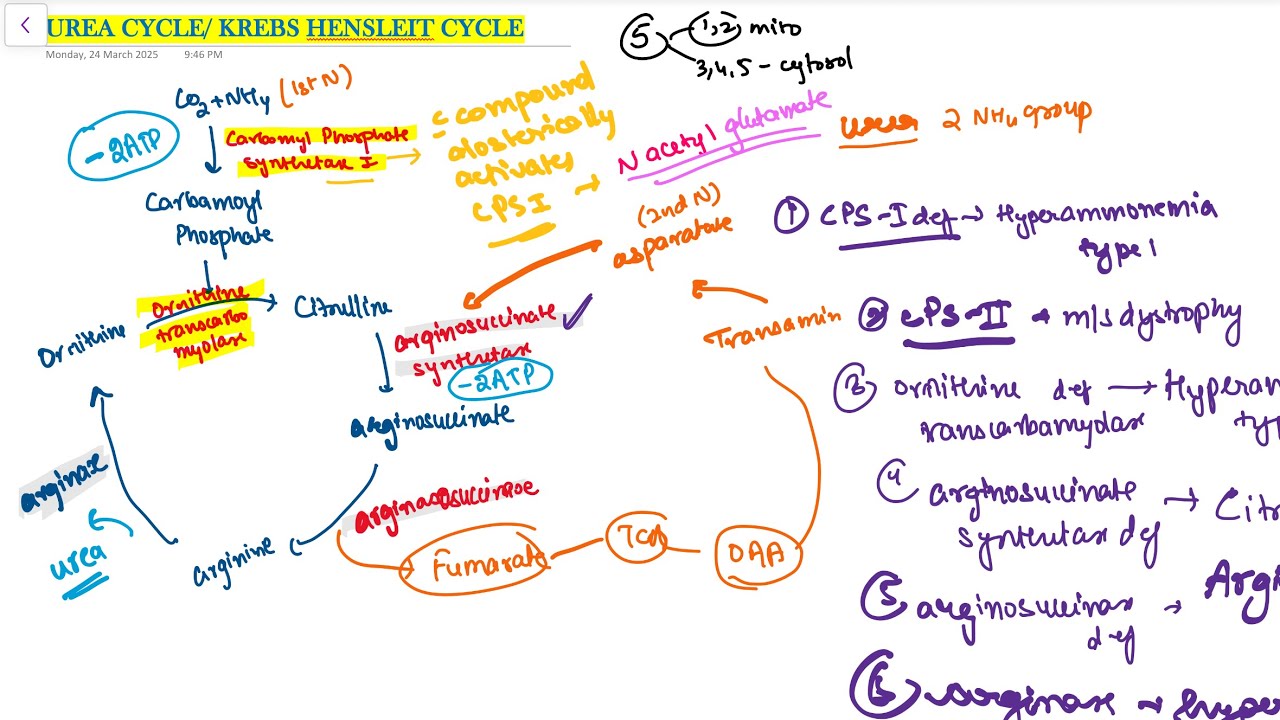 UREA CYCLE/ KREBS HENSLEIT CYCLE
Monday, 24 March 2025 9:46 PM
5
1,2) mito
3,4,5 - cytosol
CO2+NH4 (1st N)
-2ATP
Carbamyl Phosphate
synthetase I
compound
alosterically
activates
CPSI
N acetyl glutamate
urea 2 NH4 group
Carbamoyl
Phosphate
(2nd N)
asparatate
Ornithine
Ornithine
transcarbo
mylase
Citrulline
arginosuccinate
synthetase
-2ATP
Transamin
arginosuccinate
arginase
urea
arginine
arginosuccinase
Fumarate
TCA
OAA
1 CPS-I def → Hyperammonemia
type 1
2 CPS-II → m/s dystrophy
3 ornithine def → Hyperam
transcarbamylase ty
4 arginosuccinate → Citr
synthetase def
5 arginosuccinase → Argi
def
6 arginase → hyper